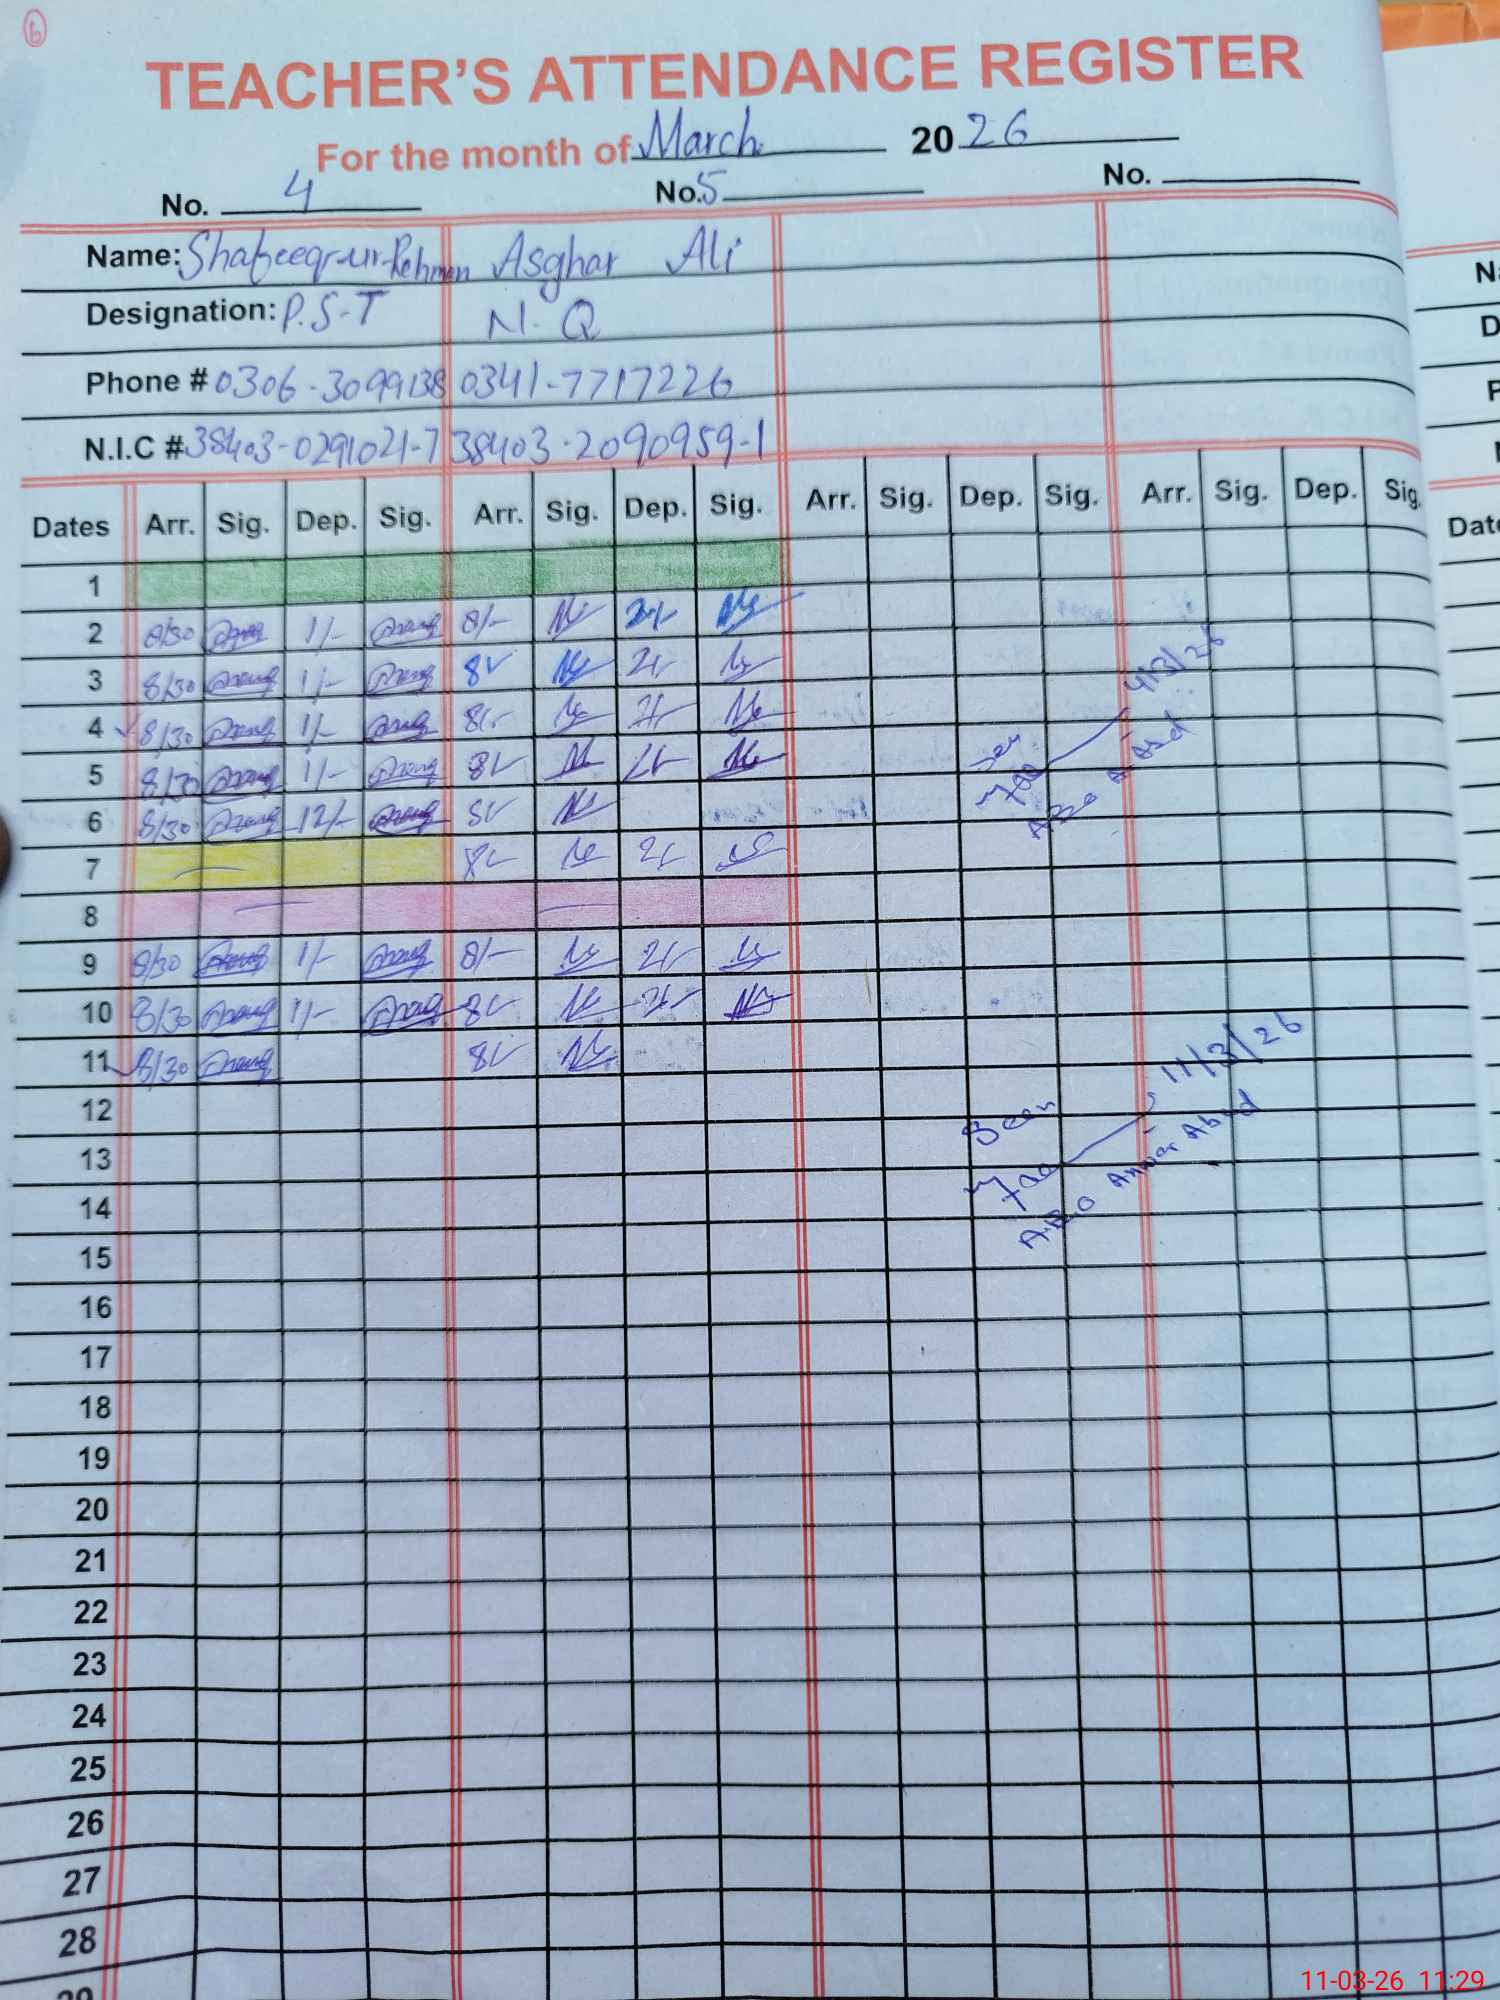 6
TEACHER'S ATTENDANCE REGISTER
For the month of March 20 26
No. 4 No. 5 No.
Name: Shafeeq-ur-Rehman Asghar Ali
Designation: P.S.T N.Q
Phone # 0306-3099138 0341-7717226
N.I.C # 38403-0291021-7 38403-2090959-1
Dates Arr. Sig. Dep. Sig. Arr. Sig. Dep. Sig. Arr. Sig. Dep. Sig. Arr. Sig. Dep. Sig.
1
2 8/30 1/- 8/- 2/-
3 8/30 1/- 8/- 2/-
4 8/30 1/- 8/- 2/-
5 8/30 1/- 8/- 2/-
6 8/30 12/- 8/-
7 8/- 2/-
8
9 8/30 1/- 8/- 2/-
10 8/30 1/- 8/- 2/-
11 8/30 8/-
4/3/26
Seen
11/3/26
Seen
12
13
14
15
16
17
18
19
20
21
22
23
24
25
26
27
28
29
Na
D
P
N
Date
11-03-26 11:29